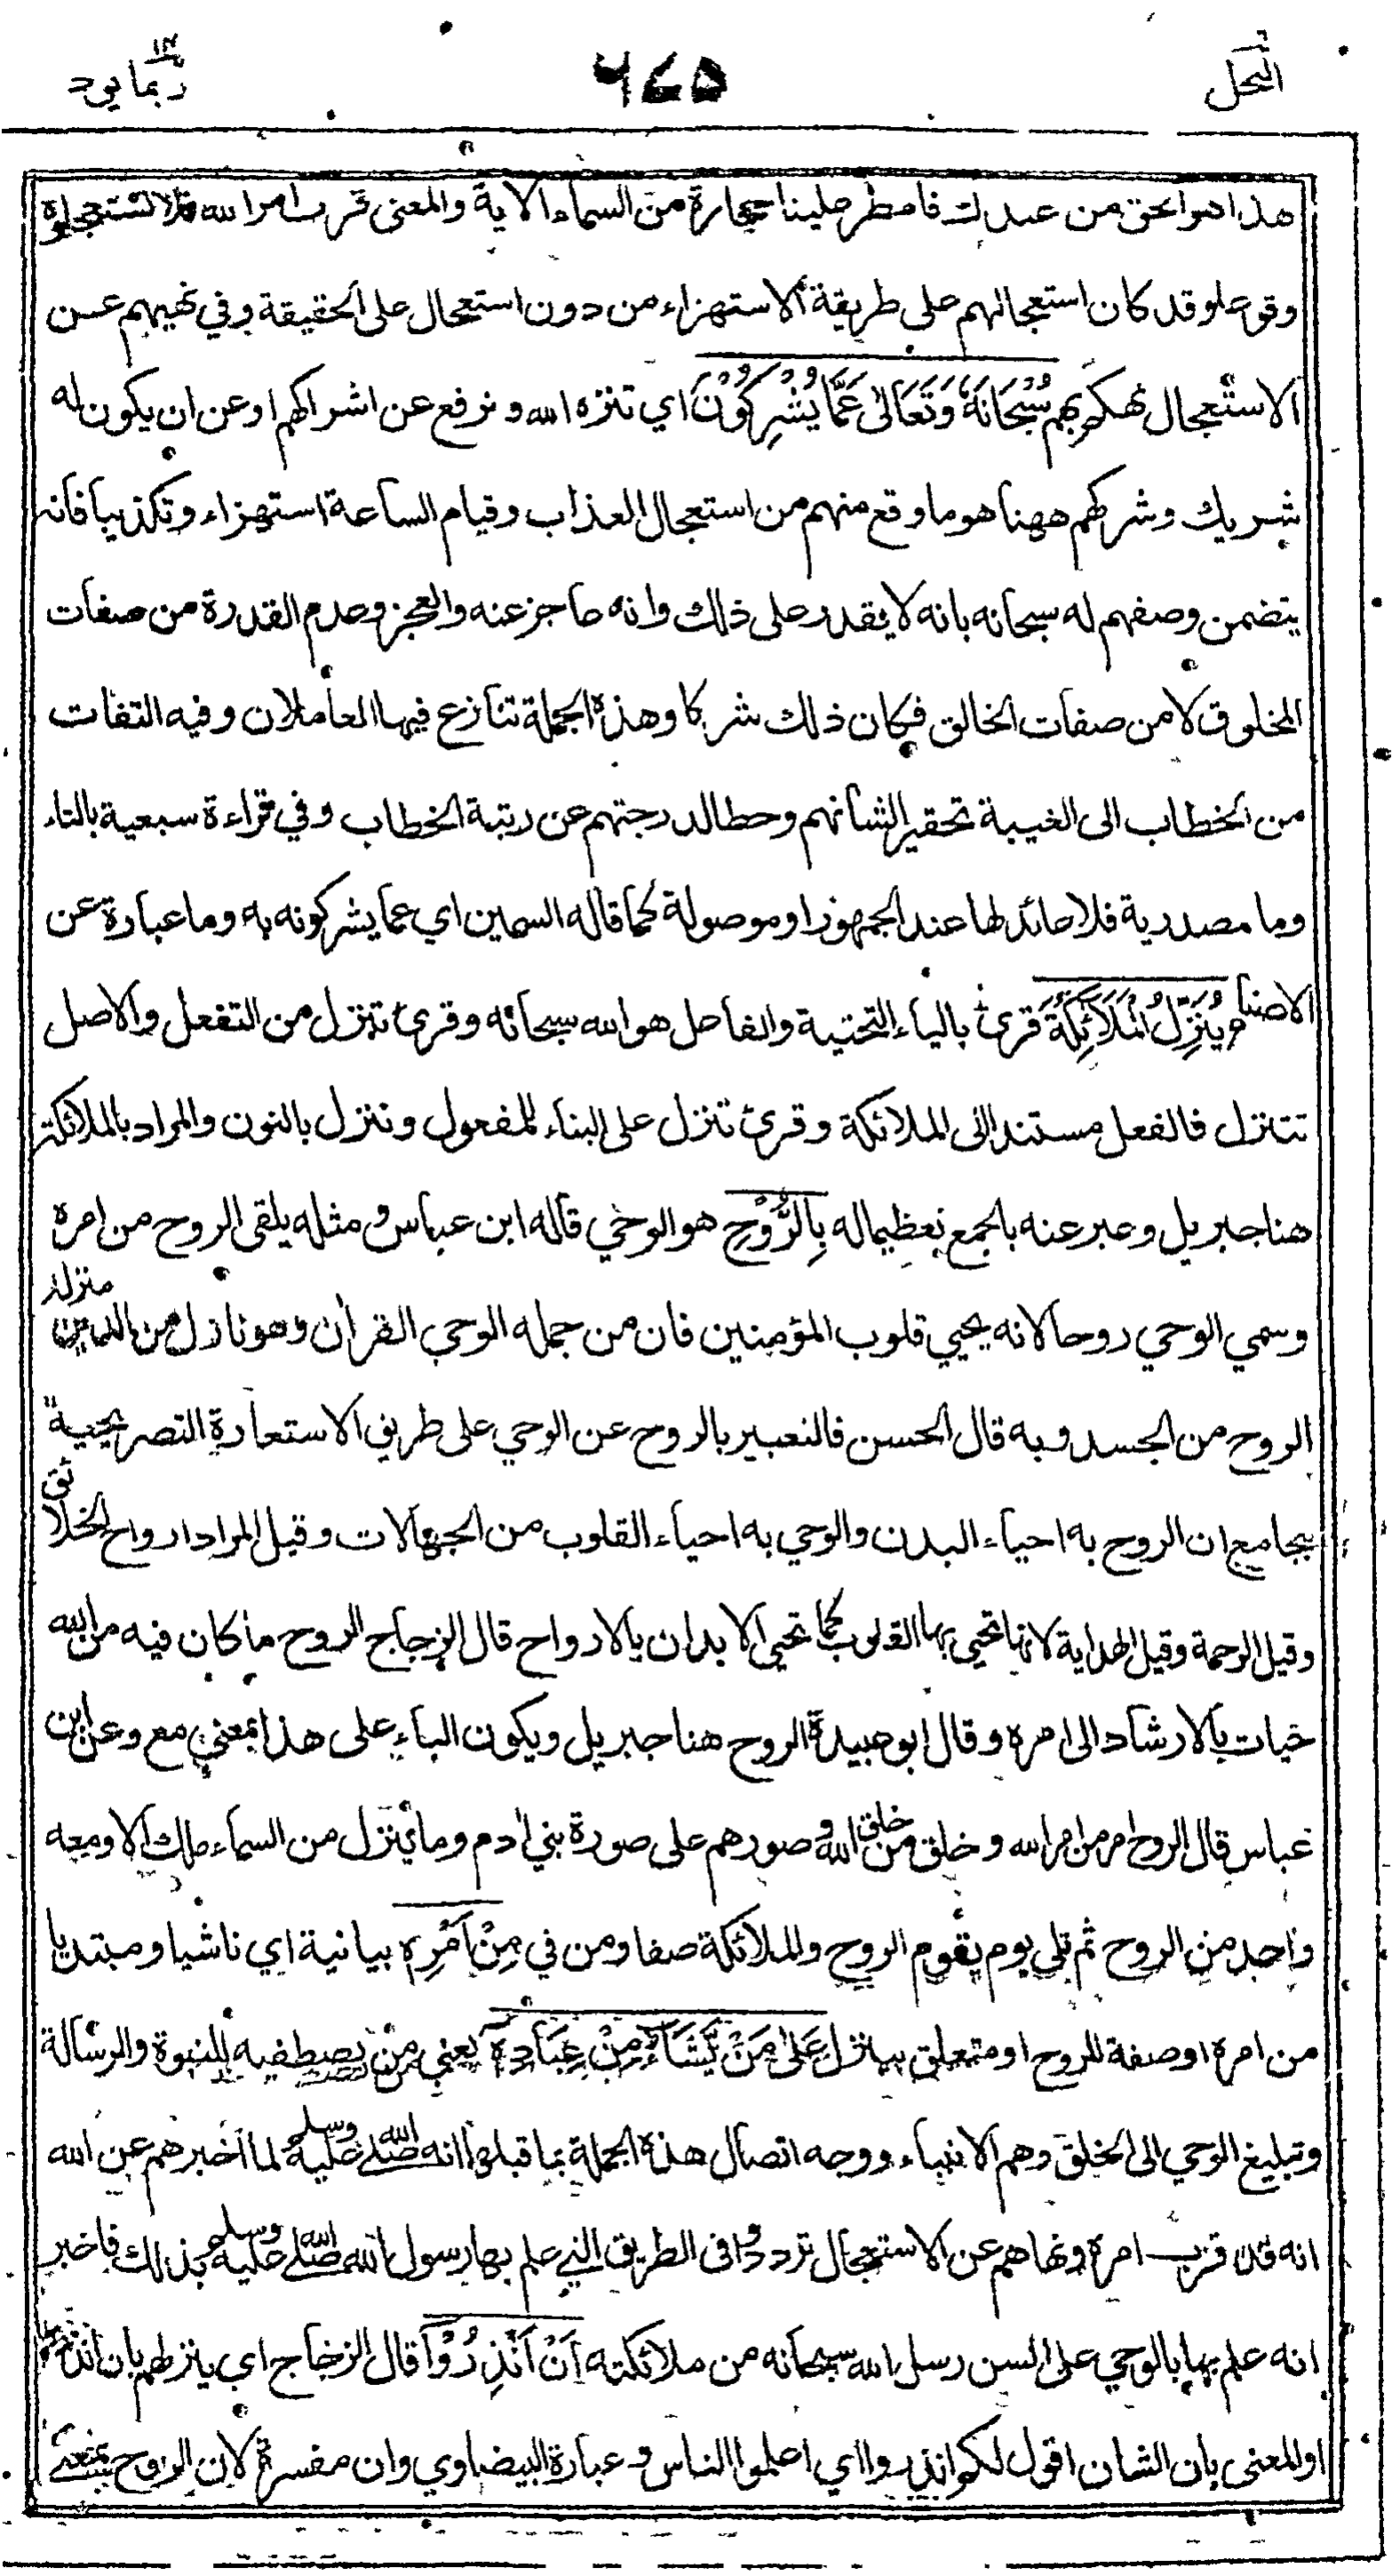 النحل
٦٤٥
ربما يود ١٤
هذا هو الحق من عندك فامطر علينا حجارة من السماء الاية والمعنى قرب امر الله فلا تستعجلوه
وقوعه وقد كان استعجالهم على طريقة الاستهزاء من دون استعجال على الحقيقة وفي نهيهم عن
الاستعجال تهكم بهم سُبْحَانَهُ وَتَعَالىٰ عَمَّا يُشْرِكُوْنَ اي تنزه الله وترفع عن اشراكهم او عن ان يكون له
شريك وشركهم ههنا هو ما وقع منهم من استعجال العذاب وقيام الساعة استهزاء وتكذيبا فانه
يتضمن وصفهم له سبحانه بانه لا يقدر على ذلك وانه عاجز عنه والعجز وعدم القدرة من صفات
المخلوق لا من صفات الخالق فكان ذلك شركا وهذه الجملة تنازع فيها العاملان وفيه التفات
من الخطاب الى الغيبة تحقيرا لشانهم وحطا لدرجتهم عن رتبة الخطاب وفي قراءة سبعية بالتاء
وما مصدرية فلا عائد لها عند الجمهور او موصولة كما قاله السمين اي عما يشركونه به وما عبارة عن
الاصنام يُنَزِّلُ الْمَلَائِكَةَ قرئ بالياء التحتية والفاعل هو الله سبحانه وقرئ تنزل من التفعل والاصل
تتنزل فالفعل مستند الى الملائكة وقرئ تنزل على البناء للمفعول وننزل بالنون والمراد بالملائكة
هنا جبريل وعبر عنه بالجمع تعظيما له بِالرُّوْحِ هو الوحي قاله ابن عباس ومثله يلقى الروح من امره
وسمي الوحي روحا لانه يحيي قلوب المؤمنين فان من جملة الوحي القرآن وهو نازل من الدين منزلة
الروح من الجسد وبه قال الحسن فالتعبير بالروح عن الوحي على طريق الاستعارة التصريحية
بجامع ان الروح به احياء البدن والوحي به احياء القلوب من الجهالات وقيل المراد ارواح الخلائق
وقيل الرحمة وقيل الهداية لانها تحيي بها القلوب كما تحيي الابدان بالارواح قال الزجاج الروح ما كان فيه من الله
حيات بالارشاد الى امره وقال ابو عبيدة الروح هنا جبريل ويكون الباء على هذا بمعنى مع وعن ابن
عباس قال الروح امر من امر الله وخلق من خلق الله وصورهم على صورة بني آدم وما ينزل من السماء ملك الا ومعه
واحد من الروح ثم تلى يوم يقوم الروح والملائكة صفا ومن في مِنْ اَمْرِهٖ بيانية اي ناشيا ومبتديا
من امره او صفة للروح او متعلق بينزل عَلىٰ مَنْ يَّشَآءُ مِنْ عِبَادِهٖ يعني من يصطفيه للنبوة والرسالة
وتبليغ الوحي الى الخلق وهم الانبياء ووجه اتصال هذه الجملة بما قبلها انه صلى الله عليه وسلم لما اخبرهم عن الله
انه قد قرب امره ونهاهم عن الاستعجال ترددوا فى الطريق التي علم بها رسول الله صلى الله عليه وسلم بذلك فاخبر
انه علم بها بالوحي على السن رسل الله سبحانه من ملائكته اَنْ اَنْذِرُوْٓا قال الزجاج اي ينزلهم بان انذروا
اوالمعنى بان الشان اقول لكم انذروا اي اعلموا الناس وعبارة البيضاوي وان مفسرة لان الروح بمعنى